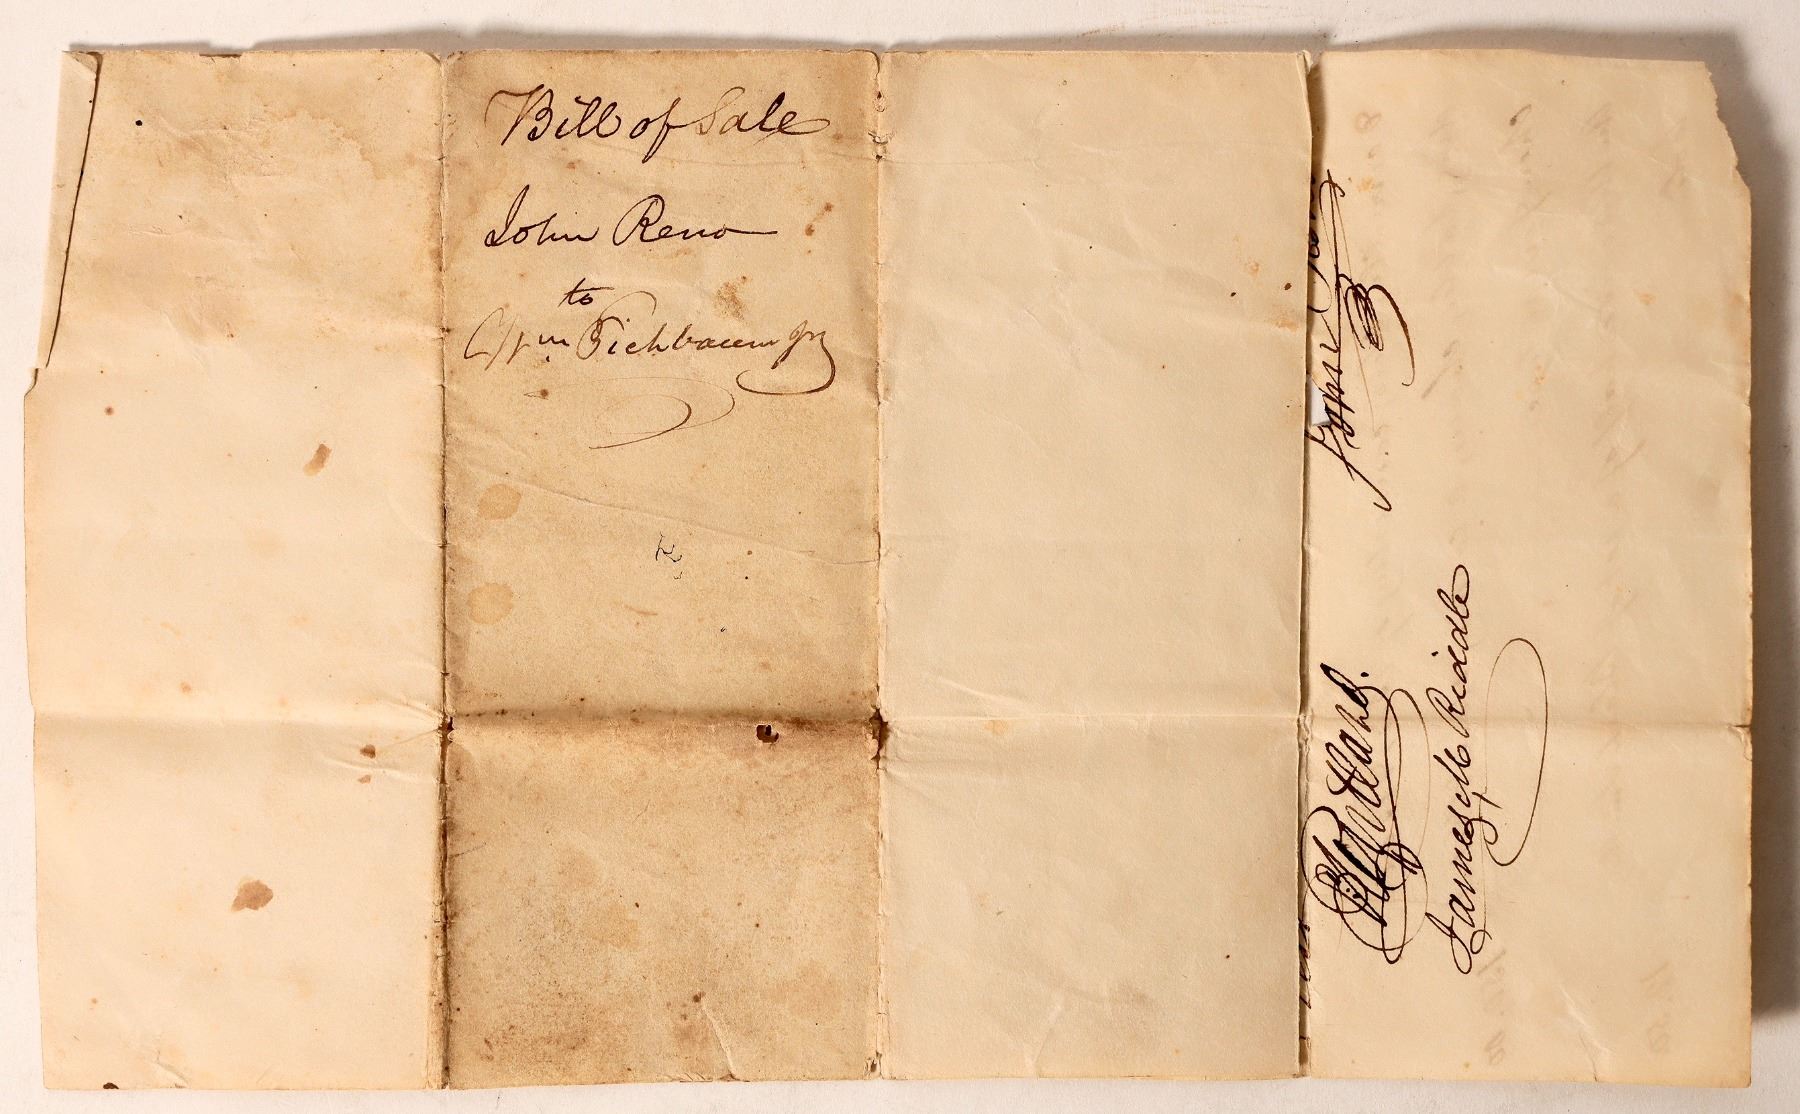 Bill of Sale
John Reno
to
Wm Eichbaum Jr
John Reno
James M Riddle